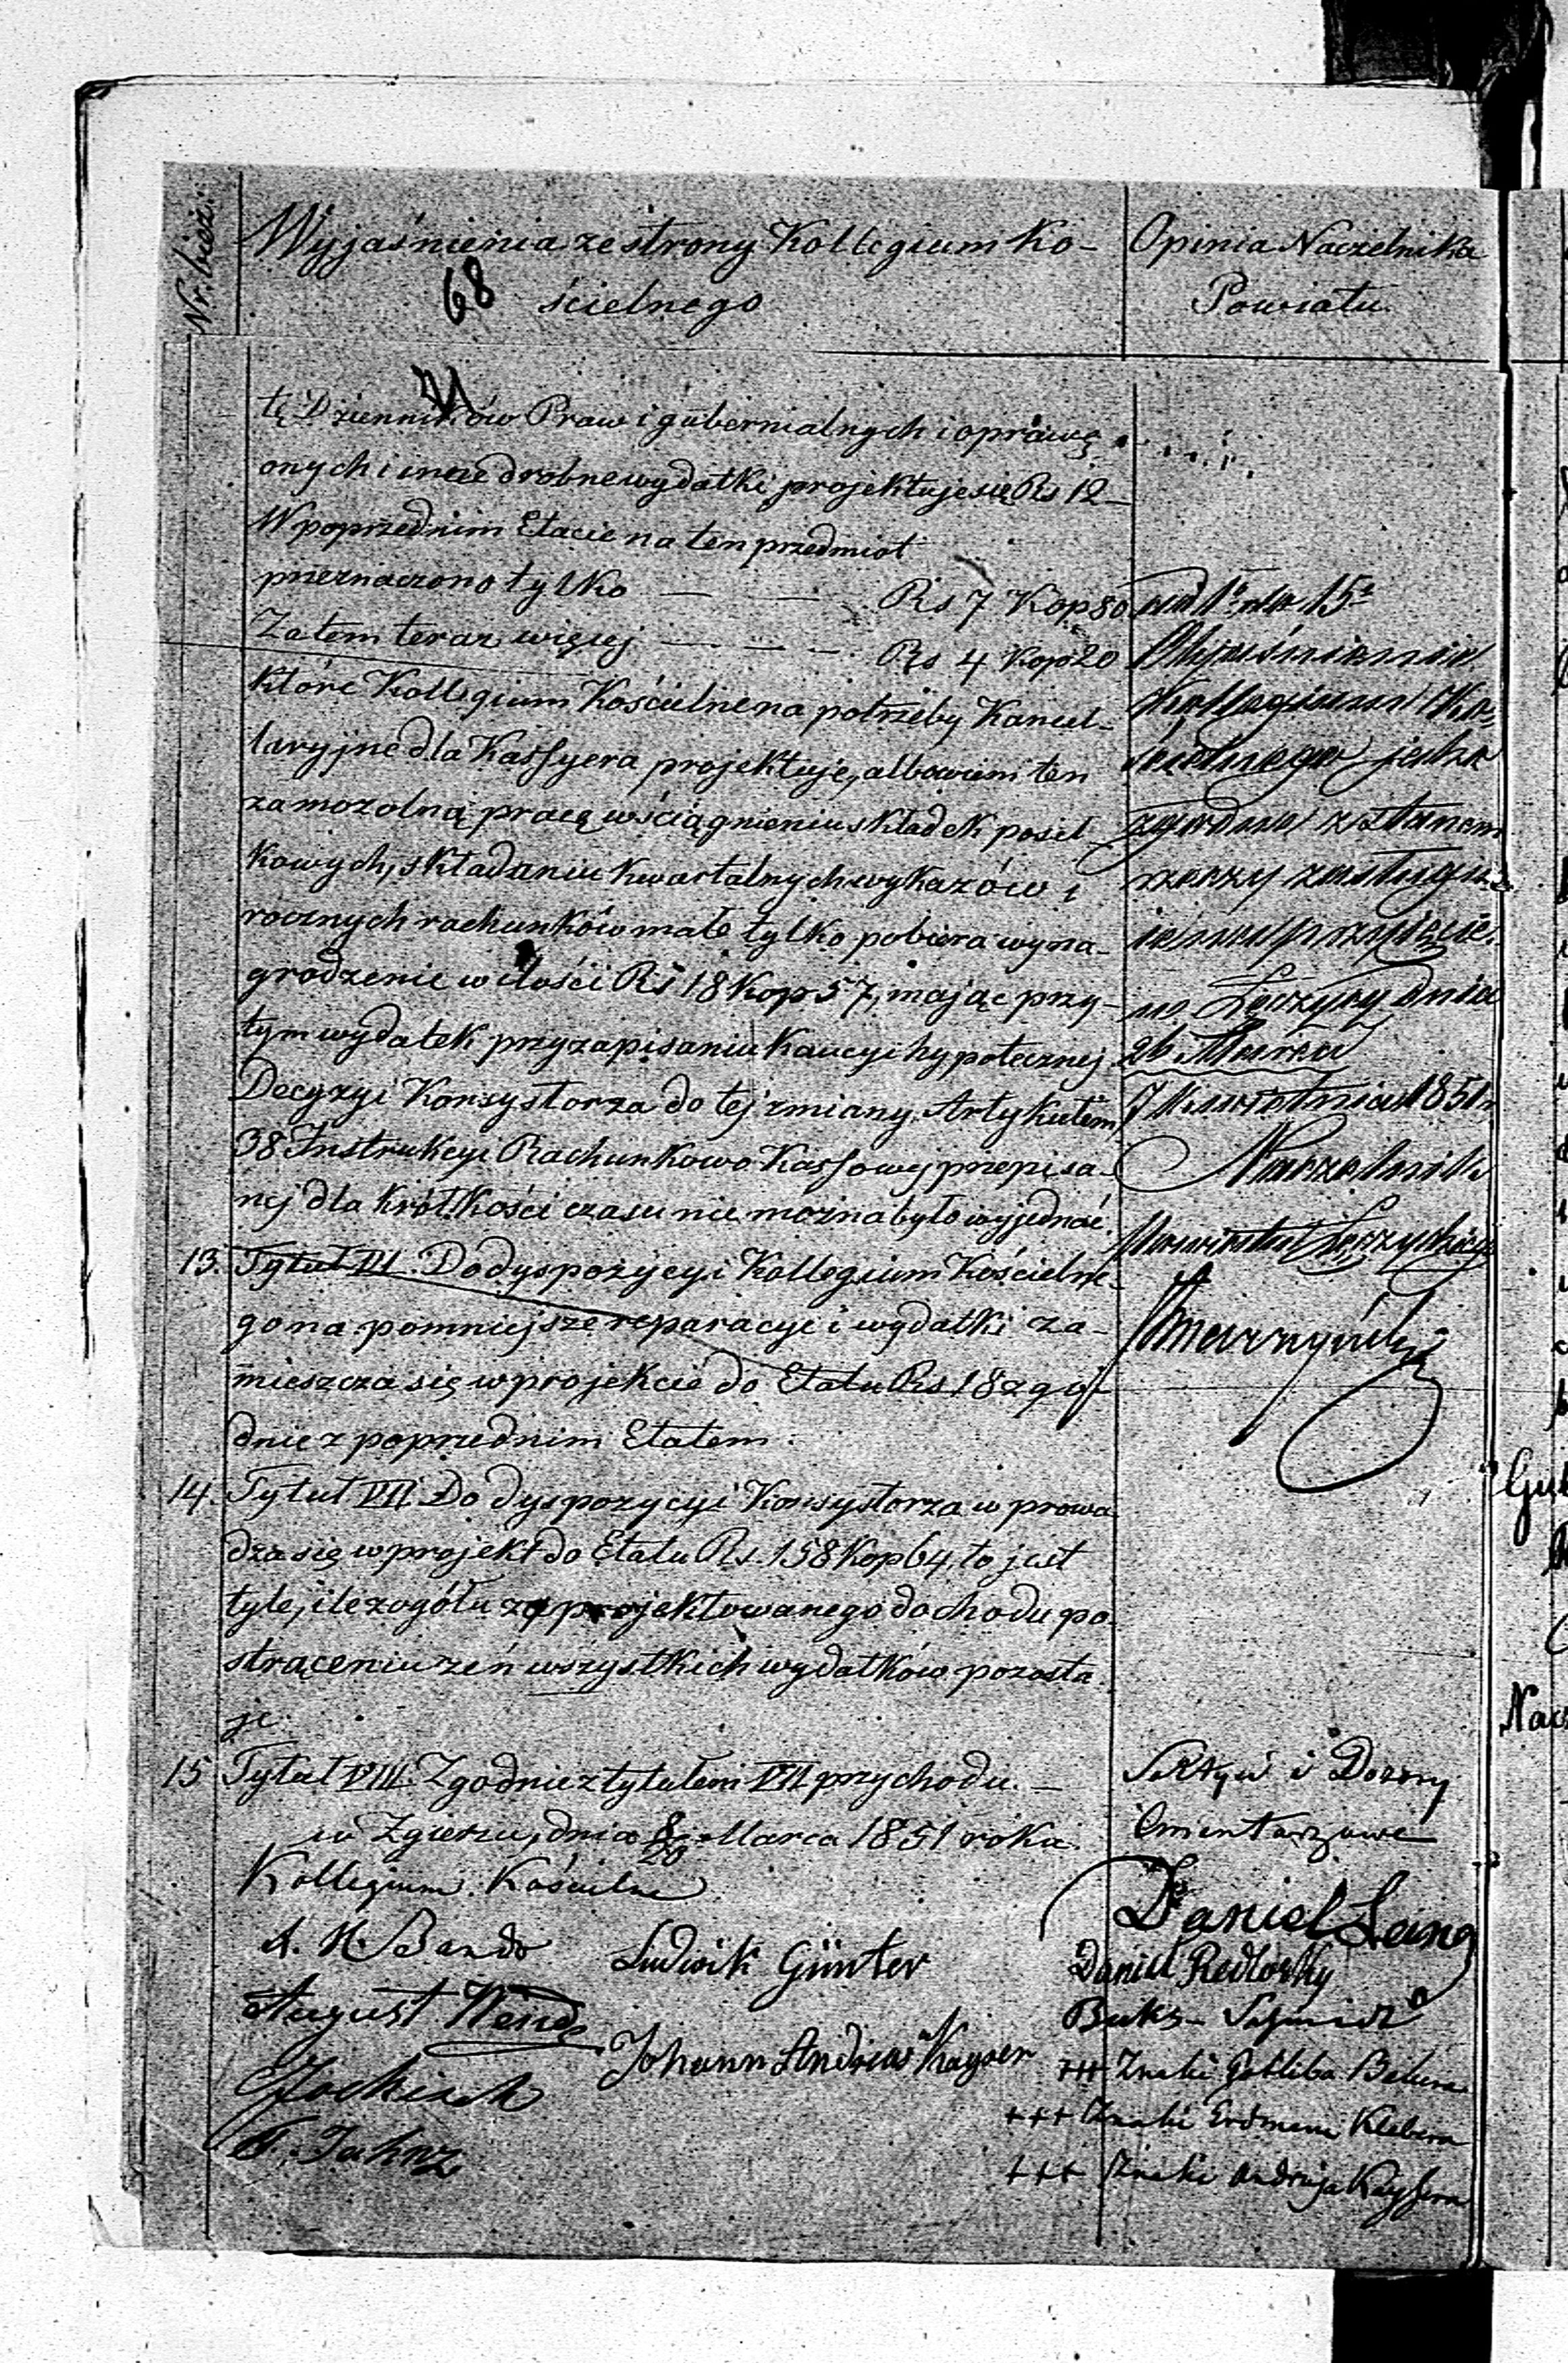 Nr. bież:
Wyjaśnienia ze strony Kollegium Ko-
ścielnego
68
Opinia Naczelnika
Powiatu
tę Dzienników Praw i gubernialnych i oprawę
onych i inne drobne wydatki projektuje się Rs 12
W poprzednim Etacie na ten przedmiot
przeznaczono tylko — — Rs 7 Kop 80
Zatem teraz więcej — - - - Rs 4 Kop 20
które Kollegium Kościelne na potrzeby Kancel-
laryjne dla Kassyera projektuje, albowiem ten
za mozolną pracę w ściągnieniu składek posił
kowych, składaniu kwartalnych wykazów i
rocznych rachunków małe tylko pobiera wyna-
grodzenie w ilości Rs 18 Kop 57, mając przy-
tym wydatek przy zapisaniu Kaucyi hypotecznej.
Decyzyi Konsystorza do tej zmiany Artykułem
38 Instrukcyi Rachunkowo Kassowej przepisa-
nej dla krótkości czasu nie można było wyjednać.
13. Tytuł VI. Do dyspozycyi Kollegium Kościelne-
go na pomniejsze reparacye i wydatki za-
mieszcza się w projekcie do Etatu Rs 18 zgo-
dnie z poprzednim Etatem.
14. Tytuł VII. Do dyspozycyi Konsystorza w prowa
dza się w projekt do Etatu Rs. 158 Kop 64, to jest
tyle, ile z ogółu zaprojektowanego dochodu po
strąceniu zeń wszystkich wydatków pozosta
je.
15 Tytuł VIII. Zgodnie z tytułem VII przychodu. —
w Zgierzu, dnia 8/20 Marca 1851 roku.
Kollegium Kościelne
ad 1 do 15
Objaśnienie
Kollegium Ko-
ścielnego jako
zgodne z stanem
rzeczy zasługu
je na przyjęcie.
w Łęczycy dnia
26 Marca
7 Kwietnia 1851 r
Naczelnik
Powiatu Łęczyckiego
Daniel
Dozory
Cmentarzowe
August Wende
Ludwik Günter
Johann Andreas Kayser
Daniel Redlosky
+++ Znaki Gottliba
+++ Znaki Erdmana Klebera
+++ Znaki Andrzeja Kayssera